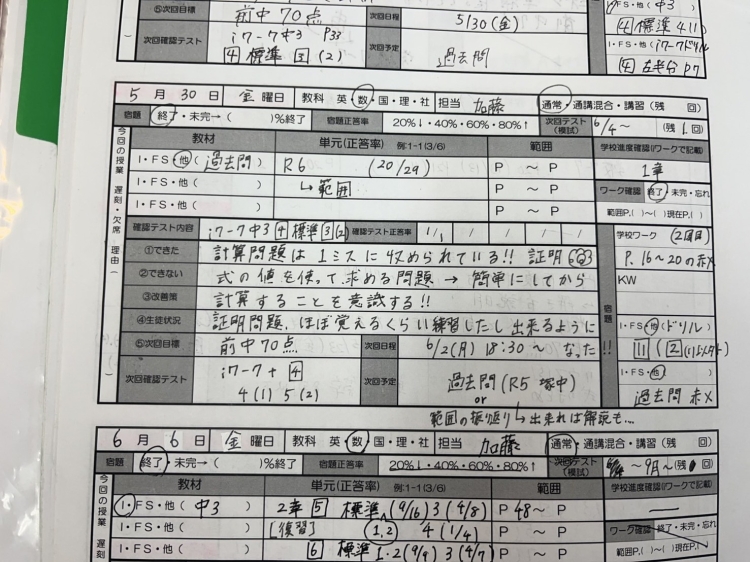 ⑤次回目標 前中70点 次回日程 5/30(金) 中3)
4 標準 4 11)
次回確認テスト iワーク中3 P33 次回予定 過去問 I・FS・他(iワークドリル
4 標準 3 (2) 4 左半分 P7
5月30日 金曜日 教科 英・数・国・理・社 担当 加藤 通常・通講混合・講習(残 回)
宿題 終了・未完→( )%終了 宿題正答率 20%↓・40%・60%・80%↑ 次回テスト(模試) 6/4~ (残1回)
今回の授業 遅刻・欠席 理由( ) 教材 単元(正答率) 例:1-1(3/6) 範囲 学校進度確認(ワークで記載)
I・FS・他(過去問) R6 (20/29) P ~ P 1章
I・FS・他( ) ↳範囲 P ~ P ワーク確認 終了・未完・忘れ
I・FS・他( ) P ~ P 範囲P.( )~( )現在P.( )
確認テスト内容 iワーク中3 4 標準 3 (2) 確認テスト正答率 1/1 / / / 学校ワーク (2周目)
①できた 計算問題は1ミスに収められている!! 証明 P.16~20の赤メ
②できない 式の値を使って求める問題→簡単にしてから KW
③改善策 計算することを意識する!! 宿題
④生徒状況 証明問題、ほぼ覚えるくらい練習したし出来るようになった!! I・FS・他(ドリル)
⑤次回目標 前中70点 次回日程 6/2(月) 18:30~
次回確認テスト iワーク+ 4 次回予定 過去問(R5 塚中) I・FS・他( )
4(1) 5(2) or 過去問 赤メ
範囲の振り返り↳出来れば解説も…
6月6日 金曜日 教科 英・数・国・理・社 担当 加藤 通常・通講混合・講習(残 回)
宿題 終了・未完→( )%終了 宿題正答率 20%↓・40%・60%・80%↑ 次回テスト(模試) ~9月~ (残 回)
今回の授業 遅刻 教材 単元(正答率) 例:1-1(3/6) 範囲 学校進度確認(ワークで記載)
I・FS・他(中3) 2章 5 標準 (9/16) 3 (4/8) P 48~ P
I・FS・他( ) [復習] 1,2 4 (1/4) P ~ P ワーク確認 終了・未完・忘れ
I・FS・他( ) 6 標準 1・2(9/9) 3(4/7) P ~ P 範囲P.( )~( )現在P.( )